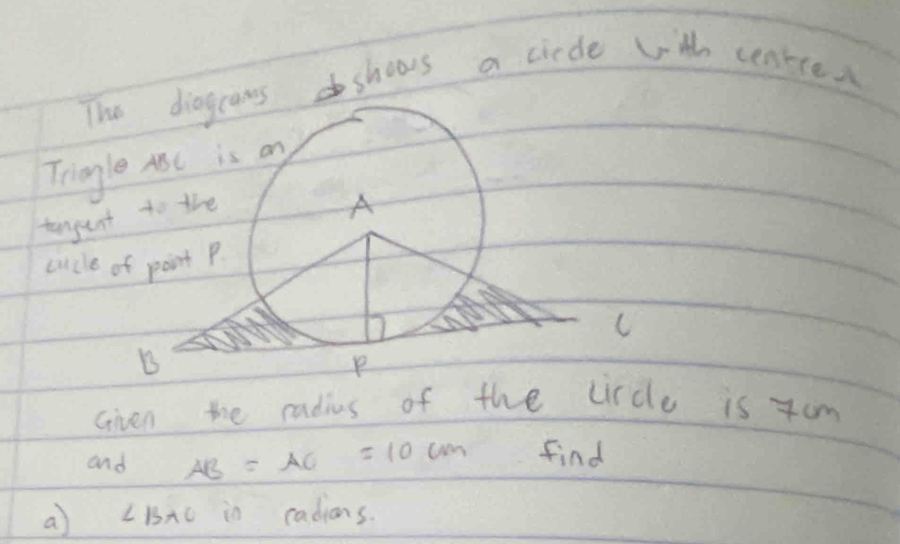 The diagrams shows a circle with centre A
Triangle ABC is an
tangent to the
circle of point P.
A
B
P
C
Given the radius of the circle is 7cm
and AB = AC = 10 cm find
a) ∠BAC in radians.